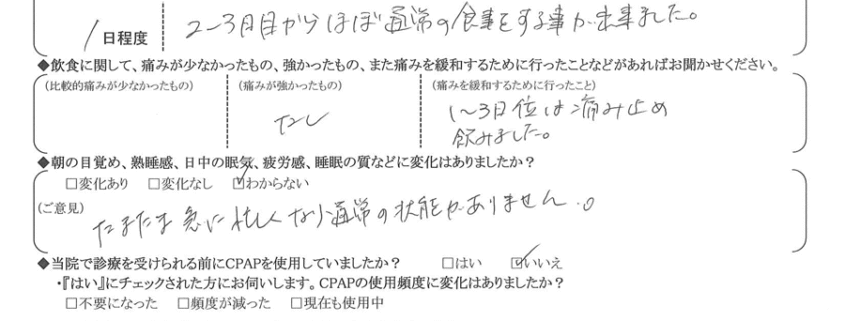 1日程度
2〜3日目からほぼ通常の食事をする事が出来ました。
◆飲食に関して、痛みが少なかったもの、強かったもの、また痛みを緩和するために行ったことなどがあればお聞かせください。
(比較的痛みが少なかったもの) (痛みが強かったもの) (痛みを緩和するために行ったこと)
なし
1〜3日位は痛み止め
飲みました。
◆朝の目覚め、熟睡感、日中の眠気、疲労感、睡眠の質などに変化はありましたか?
□変化あり □変化なし ☑わからない
(ご意見)
たまたま急に忙しくなり通常の状態がありません。
◆当院で診療を受けられる前にCPAPを使用していましたか? □はい ☑いいえ
・『はい』にチェックされた方にお伺いします。CPAPの使用頻度に変化はありましたか?
□不要になった □頻度が減った □現在も使用中